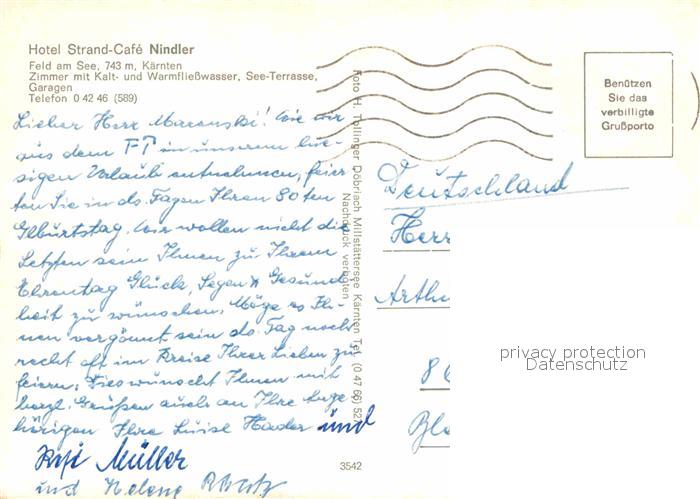 Hotel Strand-Café Nindler
Feld am See, 743 m, Kärnten
Zimmer mit Kalt- und Warmfließwasser, See-Terrasse,
Garagen
Telefon 0 42 46 (589)
Lieber Herr Maranski! Wie wir
aus dem FT in unserem hie-
sigen Urlaub entnehmen, feier
ten Sie in ds. Tagen Ihren 80ten
Geburtstag. Wir wollen nicht die
Letzten sein Ihnen zu Ihrem
Ehrentag Glück, Segen & Gesund
heit zu wünschen. Möge es Ih-
nen vergönnt sein ds. Tag noch
recht oft im Kreise Ihrer Lieben zu
feiern. Dies wünscht Ihnen mit
herzl. Grüßen auch an Ihre Ange
hörigen Ihre Luise Hader und
Rosi Müller
und Helene
Foto H. Tollinger Döbriach Millstättersee Kärnten Tel. (0 47 66) 52
Nachdruck verboten!
3542
Benützen
Sie das
verbilligte
Grußporto
Deutschland
Herr
Arthu
86
privacy protection
Datenschutz